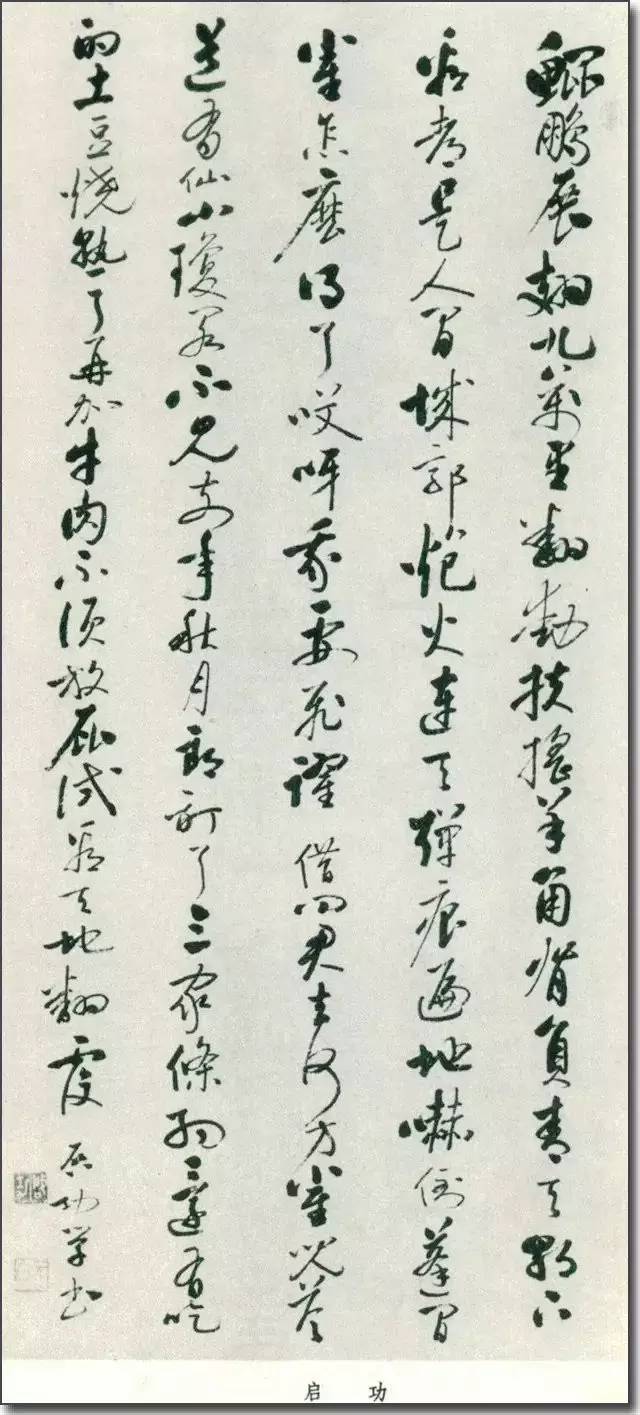 鯤鵬展翅九萬里翻動扶搖羊角背負青天朝下
看都是人間城郭炮火連天彈痕遍地嚇倒蓬間
雀怎麽得了哎呀我要飛躍借問君去何方雀兒答
道有仙山瓊閣不見前年秋月朗訂了三家條約還有吃
的土豆燒熟了再加牛肉不須放屁試看天地翻覆 启功学书
启 功